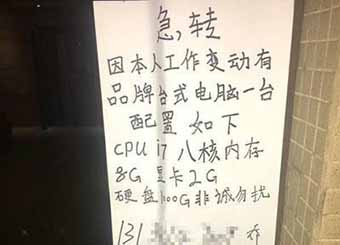 急,转
因本人工作变动有
品牌台式电脑一台
配置如下
CPU i7 八核内存
8G 显卡2G
硬盘100G非诚勿扰
131